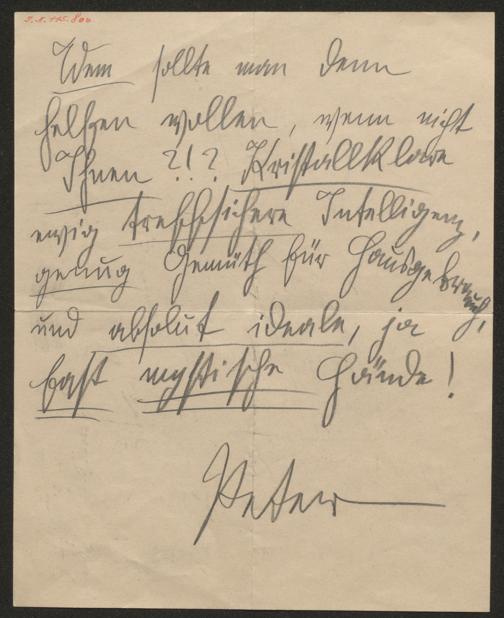 I. N. 115.800
Wem sollte man denn
helfen wollen, wenn nicht
Ihnen ?!? Kristallklare
ewig treffsichere Intelligenz,
genug Gemüth für Hausgebrauch,
und absolut ideale, ja
fast mystische Hände!
Peter